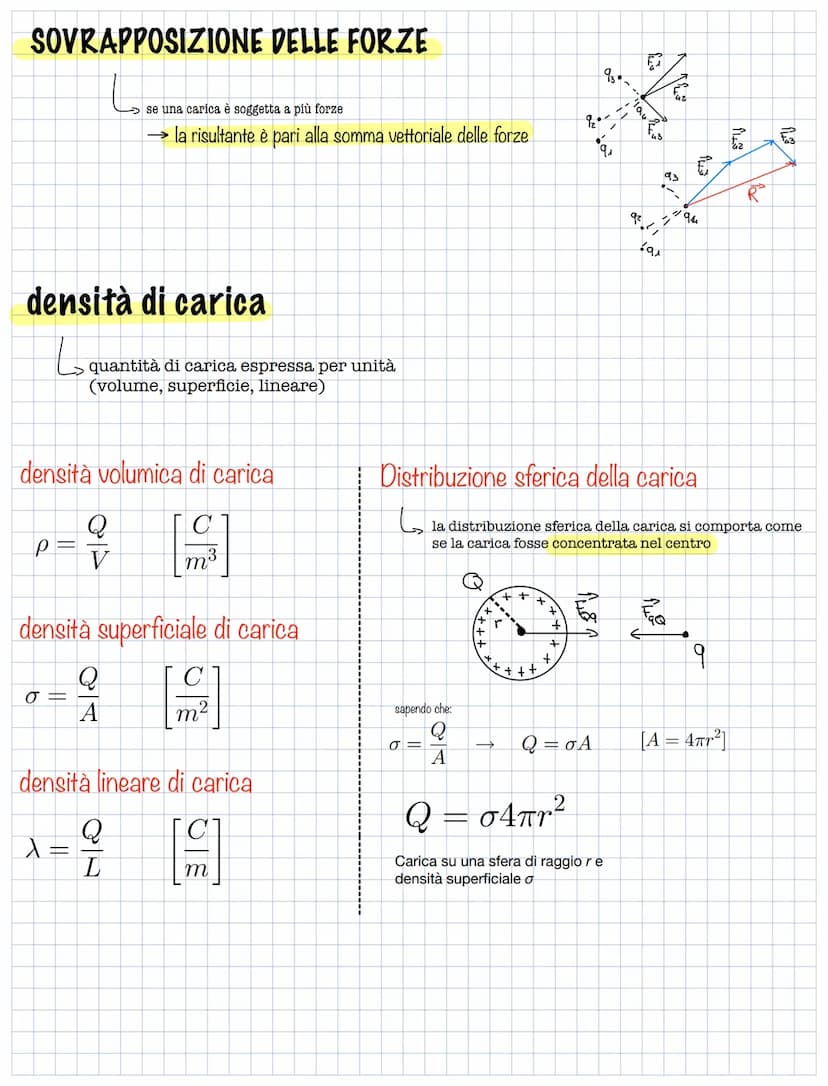 SOVRAPPOSIZIONE DELLE FORZE
se una carica è soggetta a più forze
→ la risultante è pari alla somma vettoriale delle forze
q₃ F⃗₄₁
F⃗₄₂
q₂ q₄ F⃗₄₃
q₁
F⃗₄₁ F⃗₄₂ F⃗₄₃
q₃ R⃗
q₂ q₄
q₁
densità di carica
quantità di carica espressa per unità
(volume, superficie, lineare)
densità volumica di carica
ρ = Q/V [C/m³]
densità superficiale di carica
σ = Q/A [C/m²]
densità lineare di carica
λ = Q/L [C/m]
Distribuzione sferica della carica
la distribuzione sferica della carica si comporta come
se la carica fosse concentrata nel centro
Q r F⃗Qq F⃗qQ q
sapendo che:
σ = Q/A → Q = σA [A = 4πr²]
Q = σ4πr²
Carica su una sfera di raggio r e
densità superficiale σ